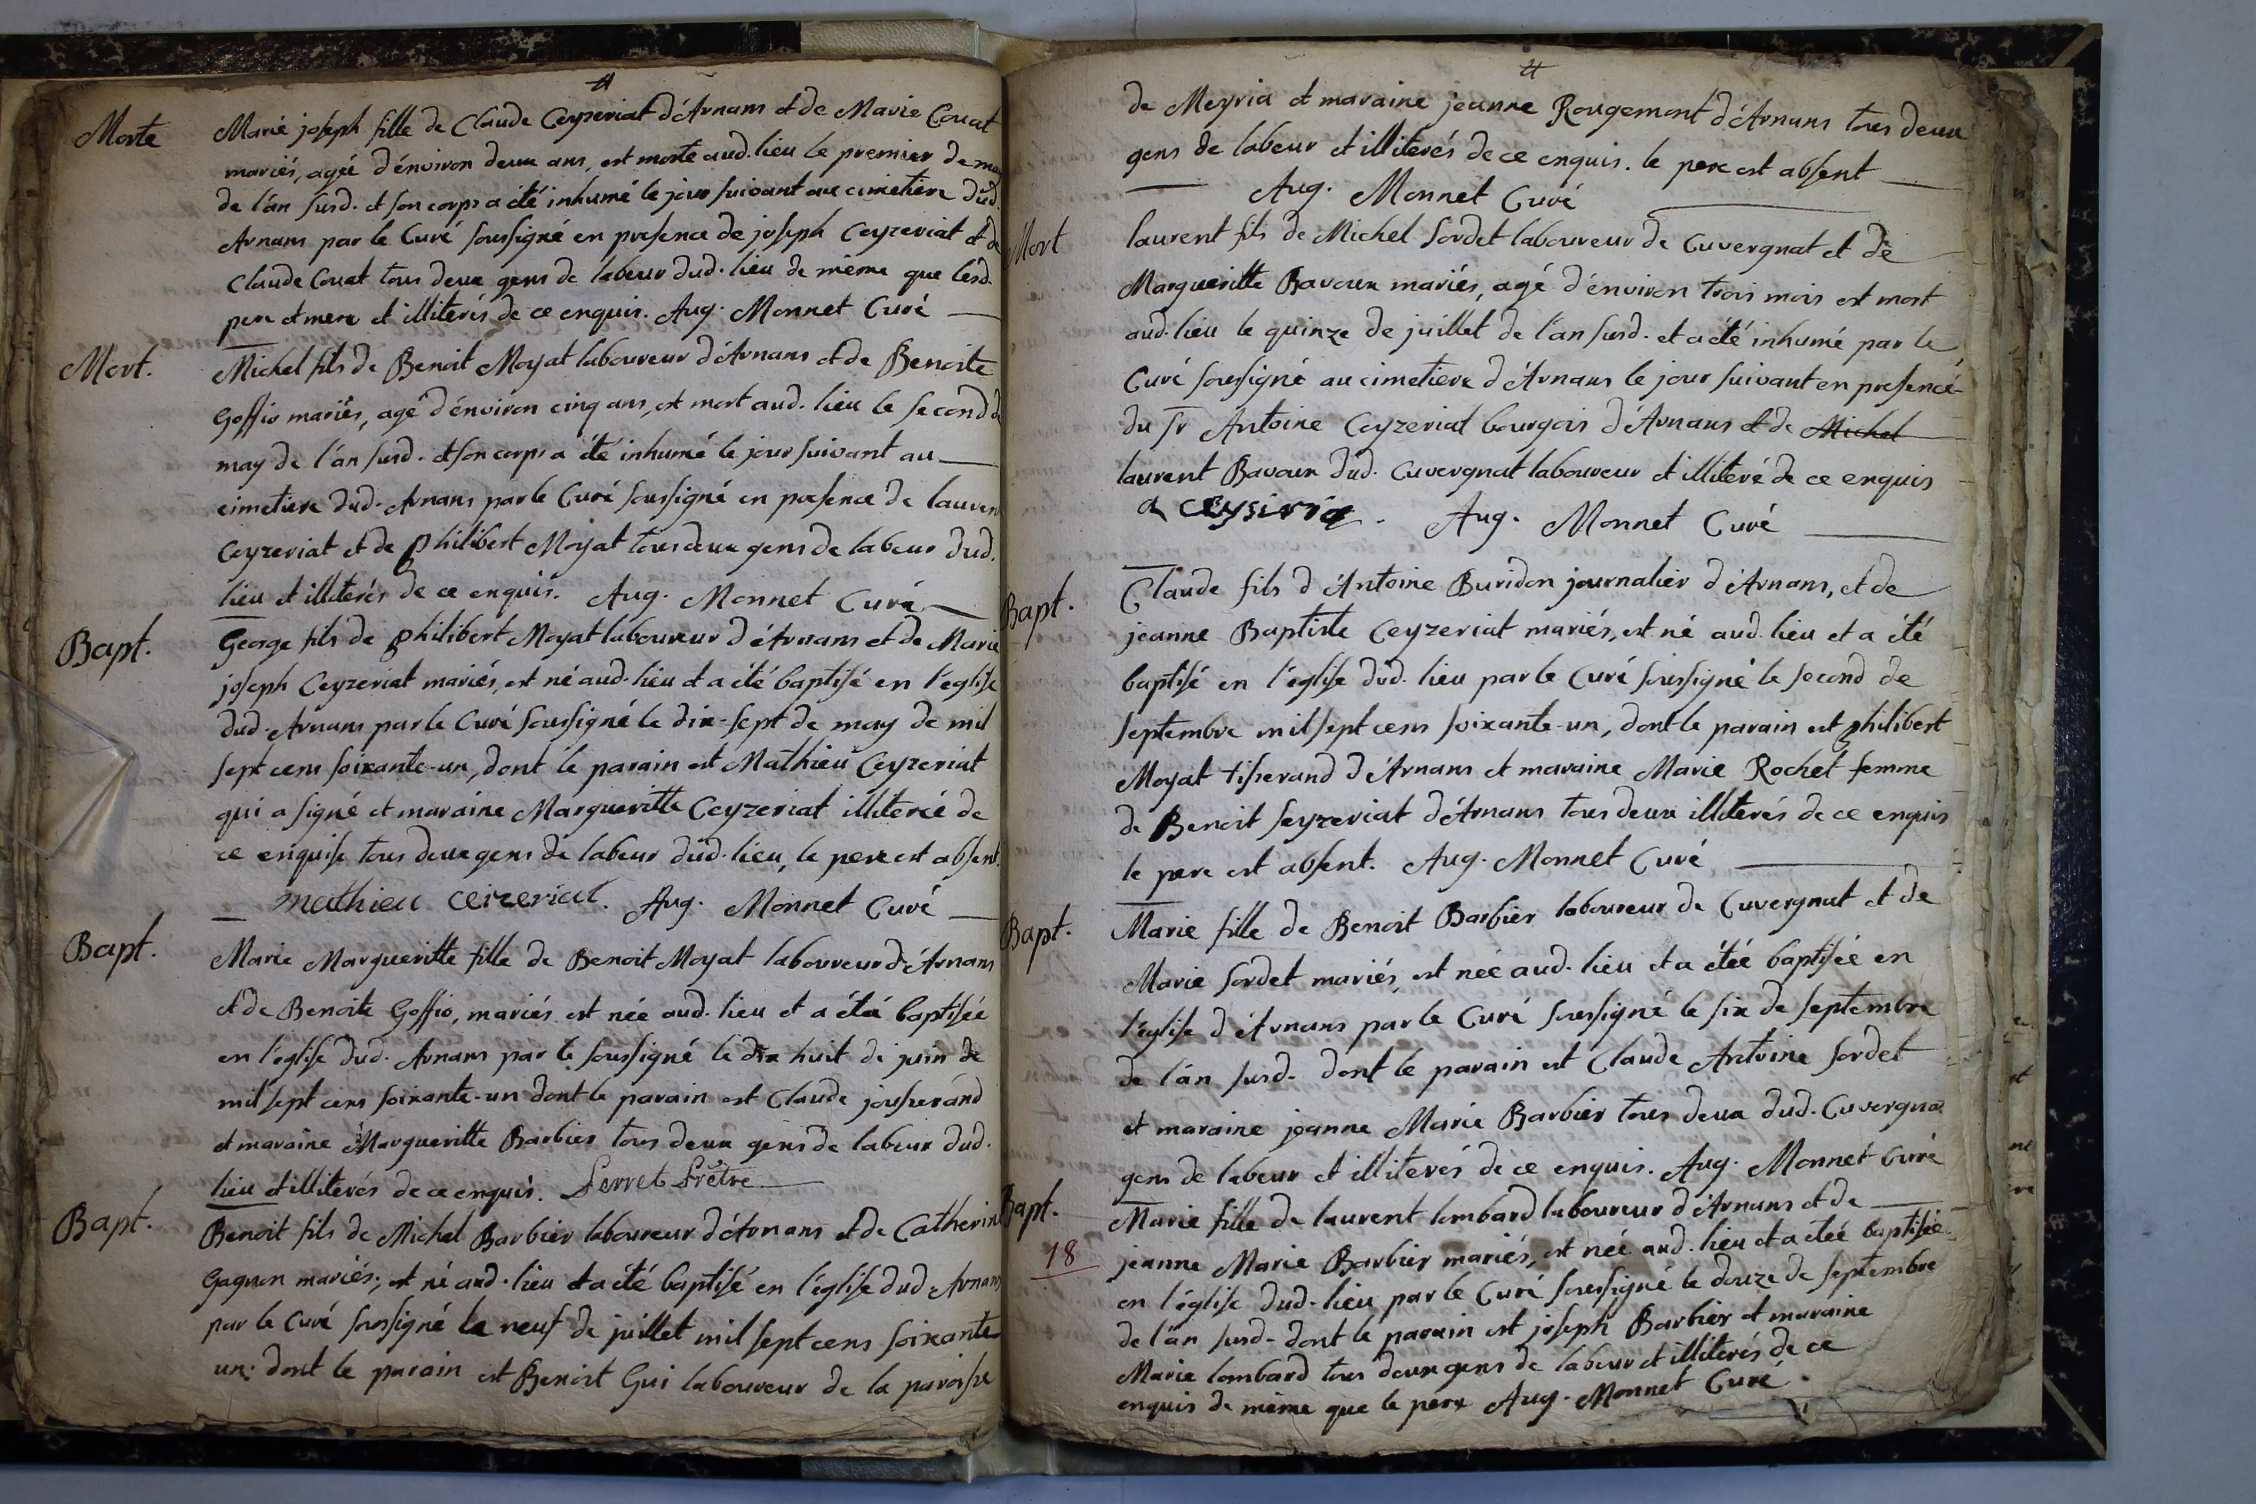 Morte
Marie joseph fille de Claude Ceyzeriat d'Arnans et de Marie Couat
mariés, agée d'énviron deux ans, est morte aud. lieu le premier de may
de l'án susd. et son corps a été inhumé le jour suivant au cimetiere dud.
Arnans par le Curé soussigné en presence de joseph Ceyzeriat et de
Claude Couat tous deux gens de labeur dud. lieu de même que lesd.
pere et mere et illiterés de ce enquis. Aug. Monnet Curé
Mort.
Michel fils de Benoit Moyat laboureur d'Arnans et de Benoite
Goffio mariés, agé d'énviron cinq ans, est mort aud. lieu le second de
may de l'án susd. et son corps a été inhumé le jour suivant au
cimetiere dud. Arnans par le Curé soussigné en presence de lauren
Ceyzeriat et de philibert Moyat tous deux gens de labeur dud.
lieu et illiterés de ce enquis. Aug. Monnet Curé
Bapt.
George fils de philibert Moyat laboureur d'Arnans et de Marie
joseph Ceyzeriat mariés, est né aud. lieu et a été baptisé en l'eglise
dud. Arnans par le Curé soussigné le dix-sept de may de mil
sept cens soixante-un, dont le parain est Mathieu Ceyzeriat
qui a signé et maraine Margueritte Ceyzeriat illiterée de
ce enquise tous deux gens de labeur dud. lieu, le pere est absent.
mathieu ceizeriat. Aug. Monnet Curé
Bapt.
Marie Margueritte fille de Benoit Moyat laboureur d'Arnans
et de Benoite Goffio, mariés est née aud. lieu et a été baptisée
en l'eglise dud. Arnans par le soussigné le dix huit de juin de
mil sept cens soixante-un dont le parain est Claude jousserand
et maraine Margueritte Barbier tous deux gens de labeur dud.
lieu et illiterés de ce enquis. Perret Prêtre
Bapt.
Benoit fils de Michel Barbier laboureur d'Arnans et de Catherine
Gagnon mariés, est né aud. lieu et a été baptisé en l'église dud Arnans
par le Curé soussigné le neuf de juillet mil sept cens soixante
un. dont le parain est Benoit Gui laboureur de la paroisse
de Meyria et maraine jeanne Rougemont d'Arnans tous deux
gens de labeur et illiterés de ce enquis. le pere est absent
Aug. Monnet Curé
Mort
laurent fils de Michel Sordet laboureur de Cuvergnat et de
Margueritte Bavoux mariés, agé d'énviron trois mois est mort
aud. lieu le quinze de juillet de l'an susd. et a été inhumé par le
Curé soussigné au cimetiere d'Arnans le jour suivant en presence
du Sr Antoine Ceyzeriat bourgois d'Arnans et de Michel
laurent Bavoux dud. Cuvergnat laboureur et illiteré de ce enquis
a ceysiria. Aug. Monnet Curé
Bapt.
Claude fils d'Antoine Buridon journalier d'Arnans, et de
jeanne Baptiste Ceyzeriat mariés, est né aud. lieu et a été
baptisé en l'église dud. lieu par le Curé soussigné le second de
septembre mil sept cens soixante-un, dont le parain est philibert
Moyat tisserand d'Arnans et maraine Marie Rochet femme
de Benoit Seyzeriat d'Arnans tous deux illiterés de ce enquis
le pere est absent. Aug. Monnet Curé
Bapt.
Marie fille de Benoit Barbier laboureur de Cuvergnat et de
Marie Sordet mariés, est née aud. lieu et a étée baptisée en
l'eglise d'Arnans par le Curé soussigné le six de septembre
de l'án susd. dont le parain est Claude Antoine Sordet
et maraine jeanne Marie Barbier tous deux dud. Cuvergnat
gens de labeur et illiterés de ce enquis. Aug. Monnet Curé
Bapt.
18
Marie fille de laurent lombard laboureur d'Arnans et de
jeanne Marie Barbier mariés, est née aud. lieu et a étée baptisée
en l'église dud. lieu par le Curé soussigné le douze de septembre
de l'án susd. dont le parain est joseph Barbier et maraine
Marie lombard tous deux gens de labeur et illiterés de ce
enquis de même que le pere Aug. Monnet Curé.